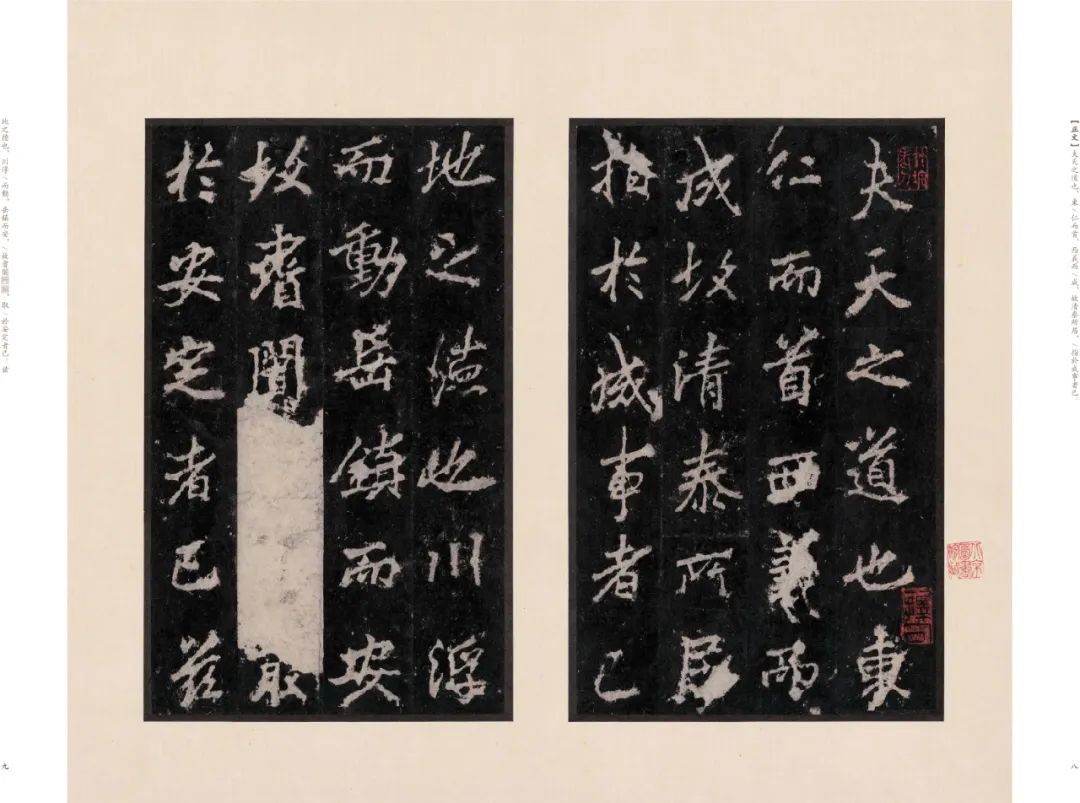 【正文】夫天之道也，東／仁而首，西義而／成，故清泰所居，／指於成事者已。
夫天之道也東
仁而首西義而
成故清泰所居
指於咸事者已
八
地之德也，川浮／而動，岳鎮而安，／故耆闍，取／於安定者已。若
地之德也川浮
而動岳鎮而安
故耆闍取
於安定者已若
九